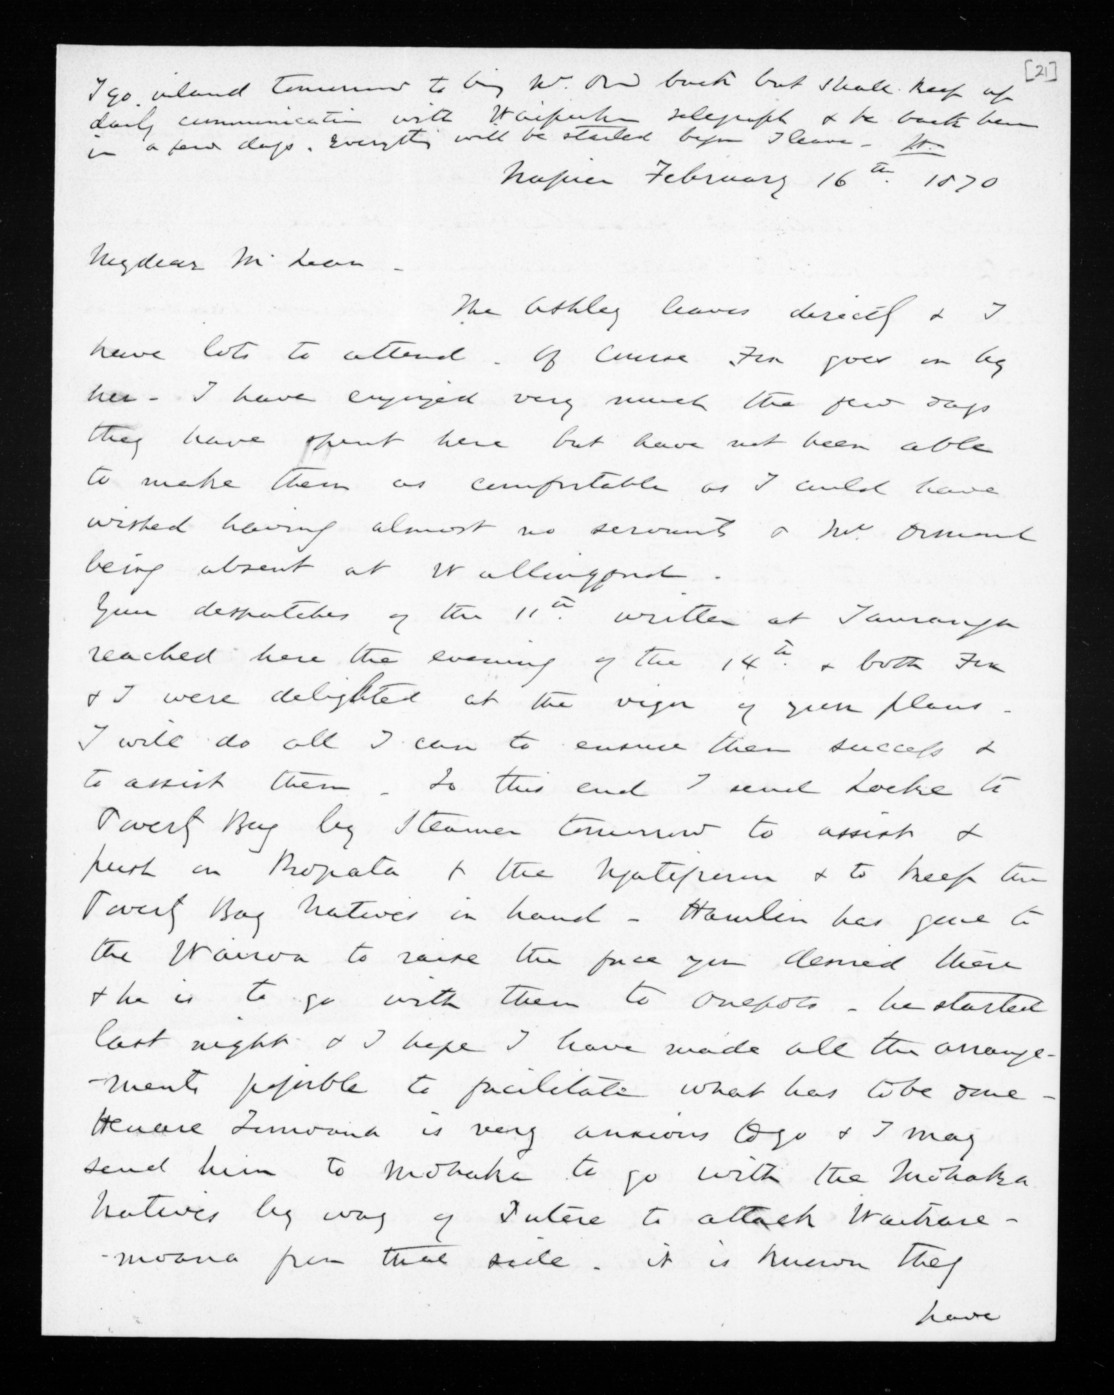 [21]
I go inland tomorrow to bring Mrs. Ord back but shall keep up
daily communication with Waipukurau telegraph & be back here
in a few days. Everything will be started before I leave -
Napier February 16th. 1870
My dear McLean -
The Ashley leaves directly & I
have lots to attend. Of course Fox goes on by
her - I have enjoyed very much the few days
they have spent here but have not been able
to make them as comfortable as I could have
wished having almost no servants & Mrs Ormond
being absent at Wallingford.
Your despatches of the 11th. written at Tauranga
reached here the evening of the 14th. & both Fox
& I were delighted at the vigor of your plans -
I will do all I can to ensure their success &
to assist them - To this end I send Locke to
Poverty Bay by Steamer tomorrow to assist &
push on Ropata & the Ngatiporou & to keep the
Poverty Bay Natives in hand - Hamlin has gone to
the Wairoa to raise the force you desired there
& he is to go with them to Onepoto - he started
last night & I hope I have made all the arrange-
-ments possible to facilitate what has to be done -
Henare Tomoana is very anxious to go & I may
send him to Mohaka to go with the Mohaka
Natives by way of Putere to attack Waikare-
-moana from that side. it is known they
have